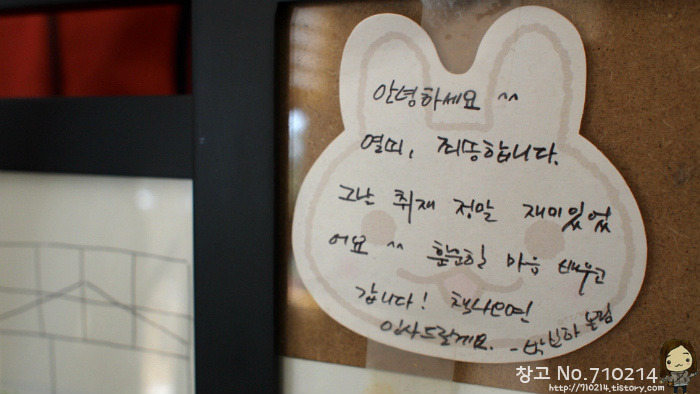 안녕하세요 ^^
열띠, 죄송합니다.
그난 취재 정말 재미있었
어요 ^^ 훈훈한 마음 배우고
갑니다! 책나오면
인사드릴게요. -박신하 올림
창고 No.710214
http://710214.tistory.com/